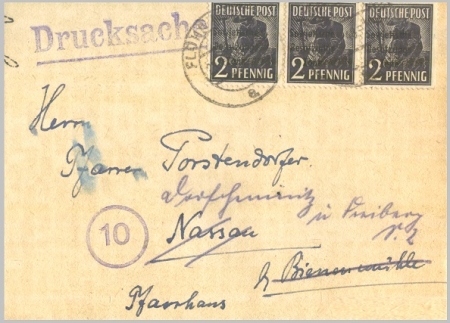 Drucksache
DEUTSCHE POST DEUTSCHE POST DEUTSCHE POST
2 PFENNIG 2 PFENNIG 2 PFENNIG
FLÖHA
e
Herrn
Pfarrer Torstendorfer
u Freiberg
10
Nassau
b/ Bienenmühle
Pfarrhaus